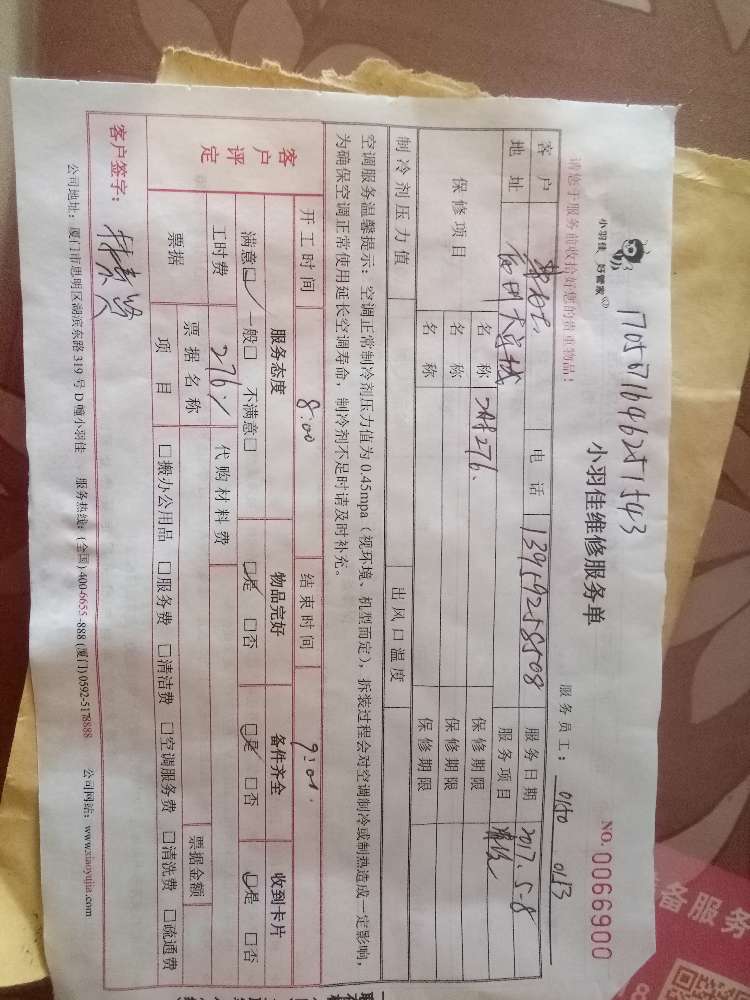 170507164625 1543
小羽佳 好管家
小羽佳维修服务单
NO.0066900
请您于服务前收拾好您的贵重物品！
服务员工： 0150 0153
客户 电话 13959258508 服务日期 2017.5-8
地址 服务项目
保修项目 名称 保修期限
名称 保修期限
名称 保修期限
制冷剂压力值 出风口温度
空调服务温馨提示：空调正常制冷剂压力值为0.45mpa（视环境、机型而定），拆装过程会对空调制冷或制热造成一定影响，
为确保空调正常使用延长空调寿命，制冷剂不足时请及时补充。
开工时间 8:00 结束时间 9:00
客户评定 服务态度 物品完好 备件齐全 收到卡片
满意□ 一般□ 不满意□ □是 □否 □是 □否 □是 □否
工时费 276 代购材料费
票据 票据名称 票据金额
项目 □搬办公用品 □服务费 □清洁费 □空调服务费 □清洗费 □疏通费
客户签字：
公司地址：厦门市思明区湖滨东路319号D幢小羽佳 服务热线：(全国)400-6655-888 (厦门)0592-5178888 公司网站：www.xiaoyujia.com
备服务